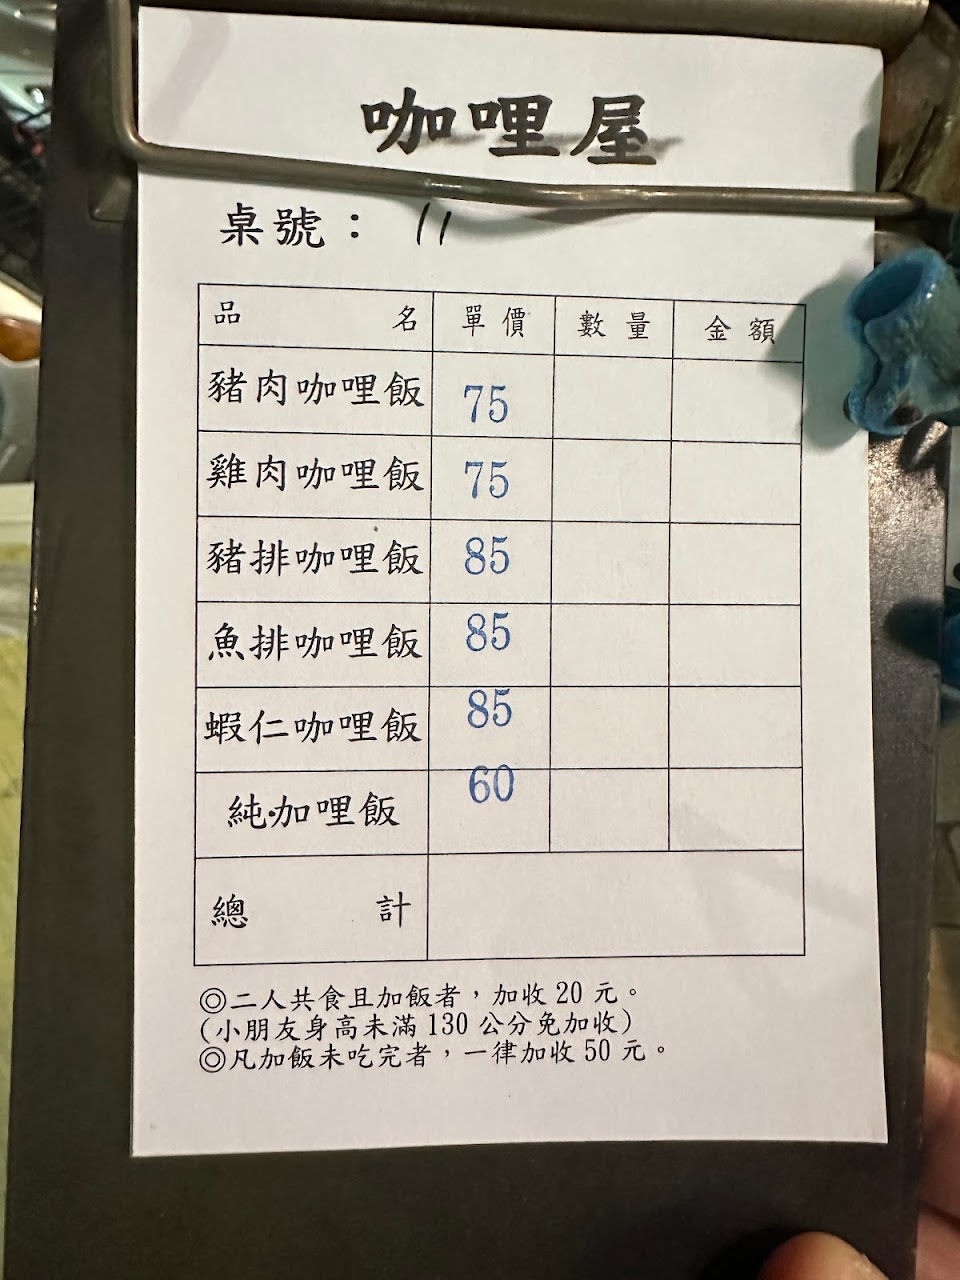 咖哩屋
桌號： 11
品名 單價 數量 金額
豬肉咖哩飯 75
雞肉咖哩飯 75
豬排咖哩飯 85
魚排咖哩飯 85
蝦仁咖哩飯 85
純加哩飯 60
總計
◎二人共食且加飯者，加收20元。
(小朋友身高未滿130公分免加收)
◎凡加飯未吃完者，一律加收50元。